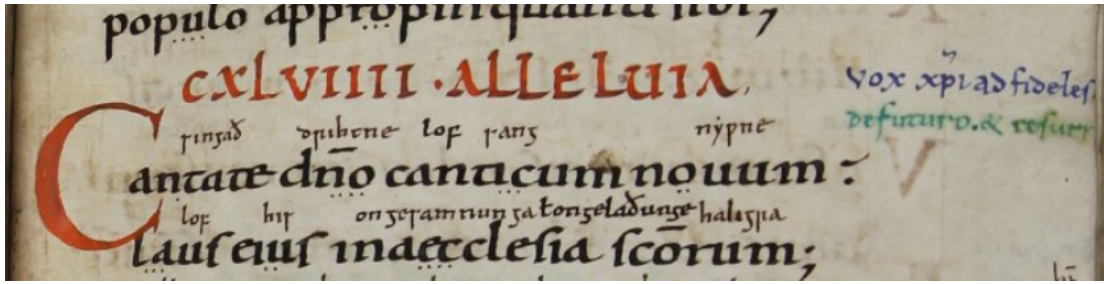 populo appropinquanti sibi;
CXLVIIII · ALLELUIA.
Vox xp̄i ad fideles
de futuro. & resurr
singað drihtne lof sang niƿne
Cantate dn̄o canticum nouum:
lof his on gesamnunga ł on gelaðunge haligra
laus eius in aecclesia sc̄orum;